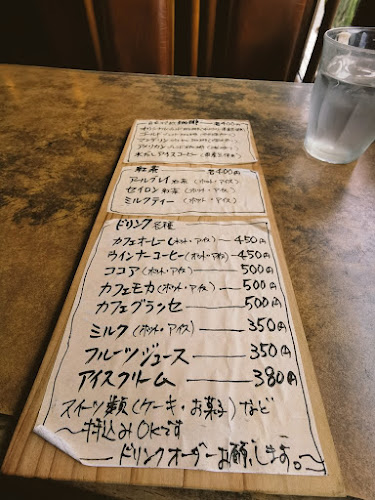 珈琲 各400円
オリジナルブレンド
ゴールド
マンデリン
アメリカン
水だしアイスコーヒー
紅茶 各400円
アールグレイ紅茶(ホット・アイス)
セイロン紅茶(ホット・アイス)
ミルクティー(ホット・アイス)
ドリンク各種
カフェオーレ(ホット・アイス) 450円
ウインナーコーヒー(ホット・アイス) 450円
ココア(ホット・アイス) 500円
カフェモカ(ホット・アイス) 500円
カフェグラッセ 500円
ミルク(ホット・アイス) 350円
フルーツジュース 350円
アイスクリーム 380円
スイーツ類(ケーキ、お菓子)など
〜持込みOKです
ドリンクオーダーお願いします。〜